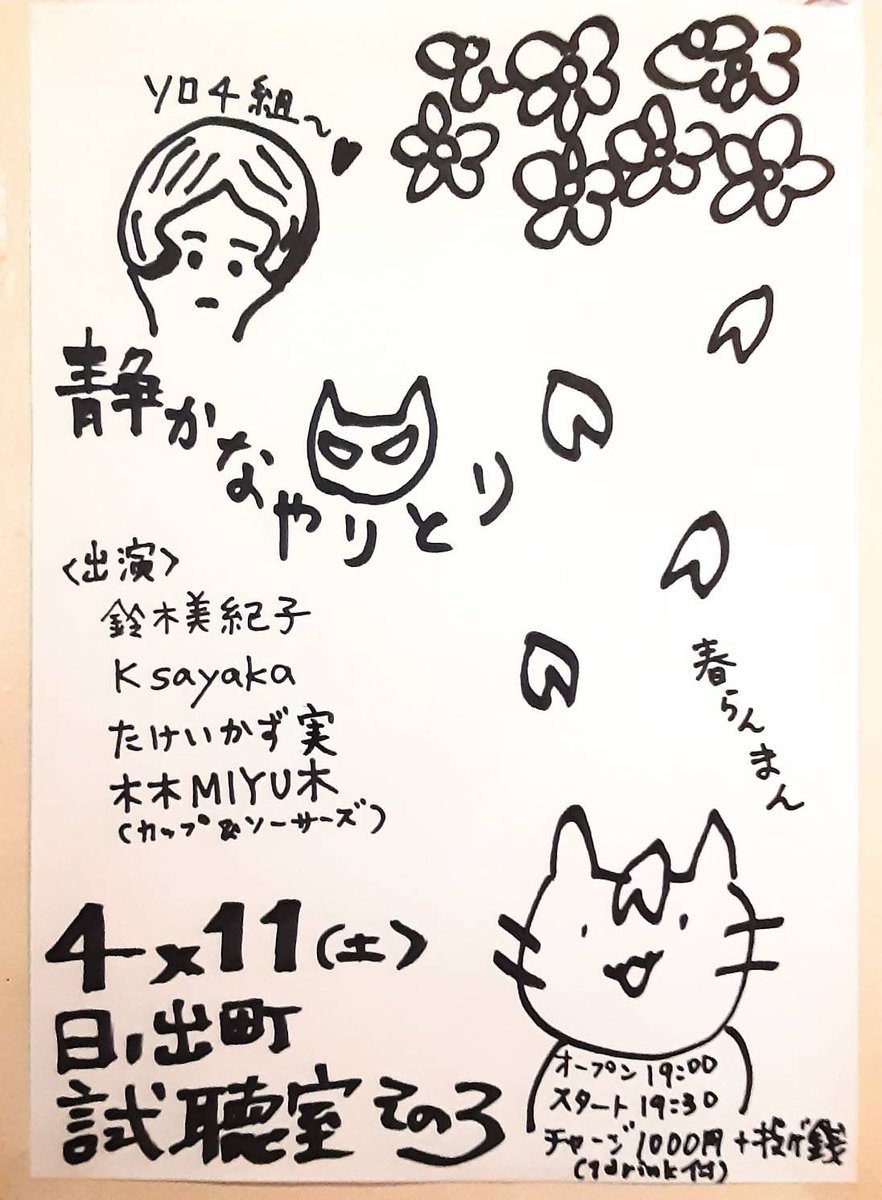 ソロ4組〜♥
静かなやりとり
<出演>
鈴木美紀子
K sayaka
たけいかず実
木木MIYU木
(カップ&ソーサーズ)
春らんまん
4×11(土)
日ノ出町
試聴室その3
オープン19:00
スタート19:30
チャージ1000円+投げ銭
(1drink付)